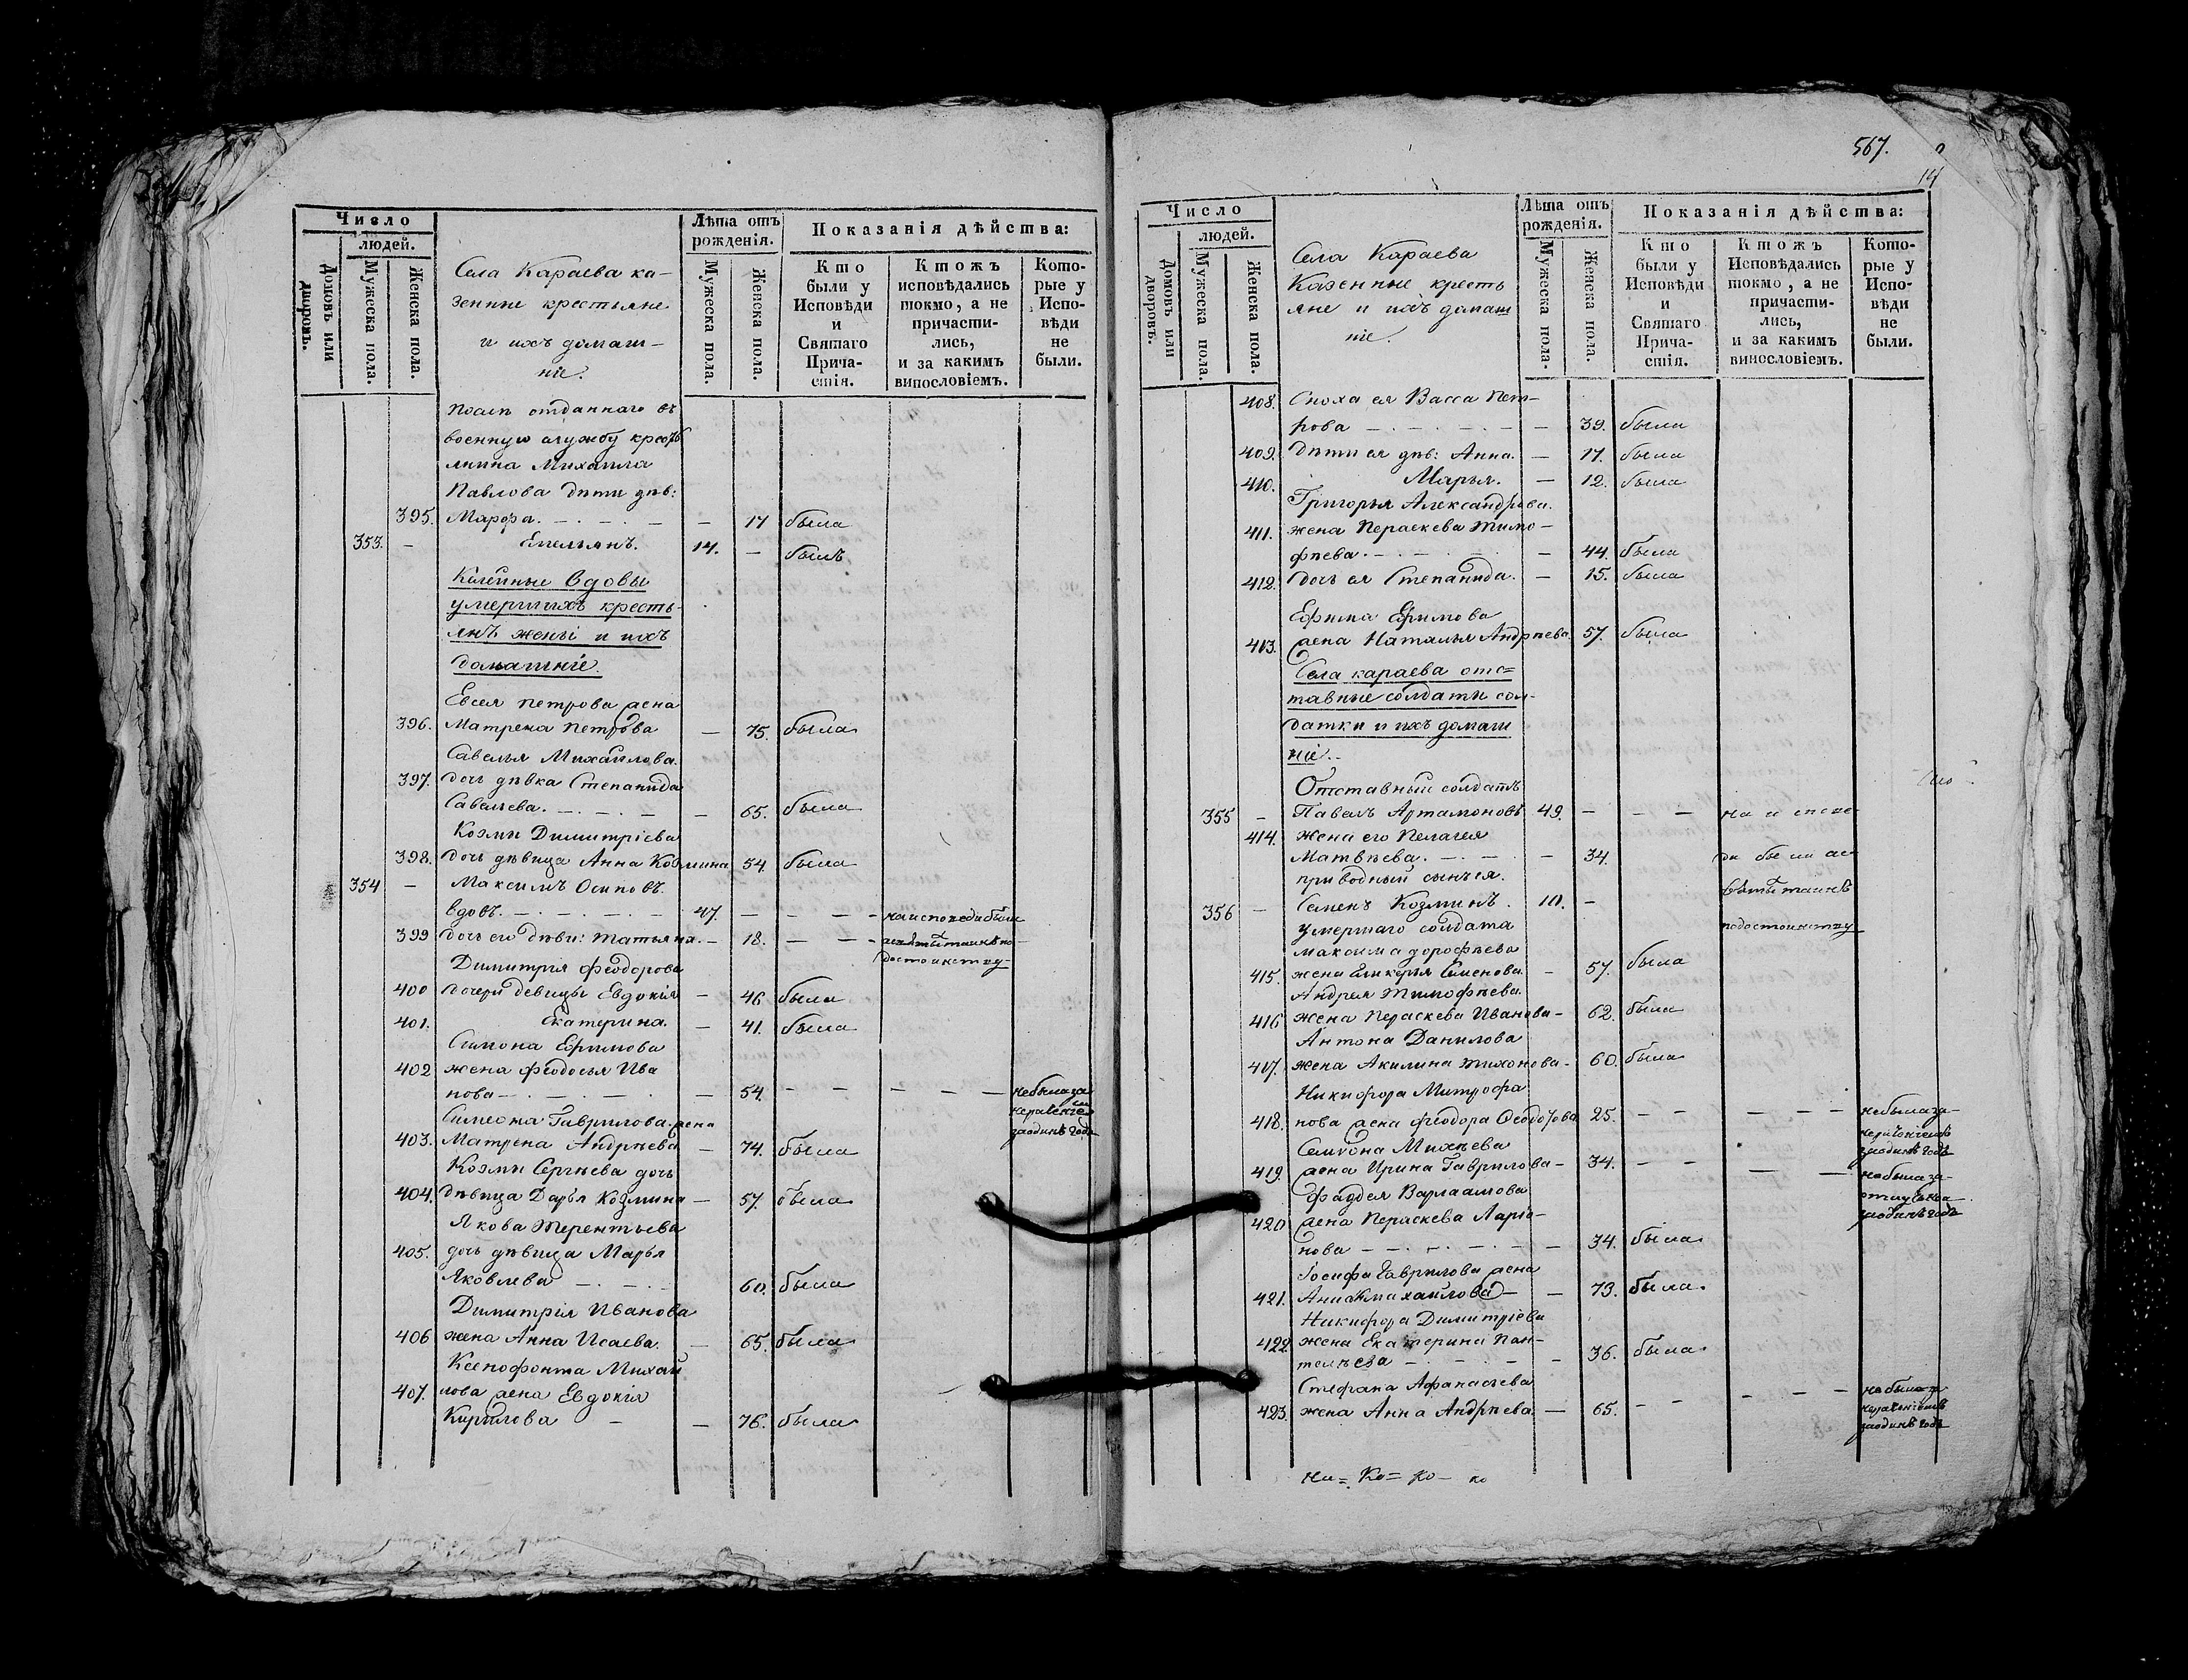 Число
людей.
Домовъ или дворовъ.
Мужеска пола.
Женска пола.
Села Караева ка-
зенные крестьяне
и ихъ домаш-
ніе.
Лѣта отъ
рожденія.
Мужеска пола.
Женска пола.
Показанія дѣйства:
Кто
были у
Исповѣди
и
Святаго
Прича-
стія.
Ктожъ
исповѣдались
токмо, а не
причасти-
лись,
и за какимъ
винословіемъ.
Кото-
рые у
Испо-
вѣди
не
были.
после отданнаго въ
военную службу кресть
янина Михаила
Павлова дѣти дѣв:
395. Марфа. — 17 была
353. — Емельянъ. 14. — былъ
вдовы
умершихъ кресть-
янъ жены и ихъ
домашніе.
Евсея Петрова жена
396. Матрена Петрова — 75. была
Савелья Михайлова.
397. дочь дѣвка Степанида
Савельева. — 65. была
Козмы Димитріева
398. дочь дѣвица Анна Козмина 54. была
354 — Максимъ Осиповъ.
вдовъ. — 47. — — — на исповеди были
399 дочь его дѣви: Татьяна. — 18. — — —
Димитрія Феодорова
400 дочери девицы Евдокія — 46 была
401. Екатерина. — 41. была
Симона Ефимова
402 жена Феодосья Ива
нова — — 54. — — — — не была за
за одинъ годъ
Симеона Гаврилова жена
403. Матрена Андрѣева — 74. была
Козмы Сергѣева дочь
404. дѣвица Дарья Козмина — 57. была
Якова Терентьева
405. дочь дѣвица Марья
Яковлева — 60. была
Димитрія Иванова
406 жена Анна Исаева. — 65. была
Ксенофонта Михай
407. лова жена Евдокія
Кирилова — — 76. была
567.
14
Число
людей.
Домовъ или дворовъ.
Мужеска пола.
Женска пола.
Села Караева
Казенные кресть
яне и ихъ домаш
ніе.
Лѣта отъ
рожденія.
Мужеска пола.
Женска пола.
Показанія дѣйства:
Кто
были у
Исповѣди
и
Святаго
Прича-
стія.
Ктожъ
Исповѣдались
токмо, а не
причасти-
лись,
и за какимъ
винословіемъ.
Кото-
рые у
Испо-
вѣди
не
были.
408. Сноха ея Васса Пет-
рова — — 39. была
409. Дѣти ея дѣв: Анна. — 17. была
410. Марья. — 12. была
Григорья Александрова.
411. жена Пераскева Тимо-
фѣева. — — 44. была
412. дочь ея Степанида. — 15. была
Ефима Ефимова
413. жена Наталья Андрѣева. 57. была
Села караева отс=
тавные солдаты сол-
датки и ихъ домаш
ніе.-
Отставный солдатъ
355 — Павелъ Артамоновъ 49. — — — на испове-
414. жена его Пелагея
Матвѣева. — — 34. ди были
приводный сынъ ея.
356 — Семенъ Козминъ. 10. —
умершаго солдата
максима дорофѣева
415. жена Семенова. — 57. была
Андрея Тимофѣева.
416 жена Пераскева Иванова — 62. была
Антона Данилова
417. жена Акилина Тихонова — 60. была
Никифора Митрофа
418. нова жена Феодора Феодорова 25. — — — — — не была за
за одинъ годъ
Семиона Михѣева
419. жена Ирина Гаврилова — 34. — — — — не была за
за одинъ годъ
Фаддея Варлаамова
420 жена Пераскева Ларіо-
нова — — 34. была
Іосифа Гаврилова жена
421. Михайлова — — 73. была
Никифора Димитріева
422. жена Екатерина Пан-
телѣева — — 36. была
Стефана Афанасьева
423. жена Анна Андрѣева. — 65. — — — — — не была за
за одинъ годъ